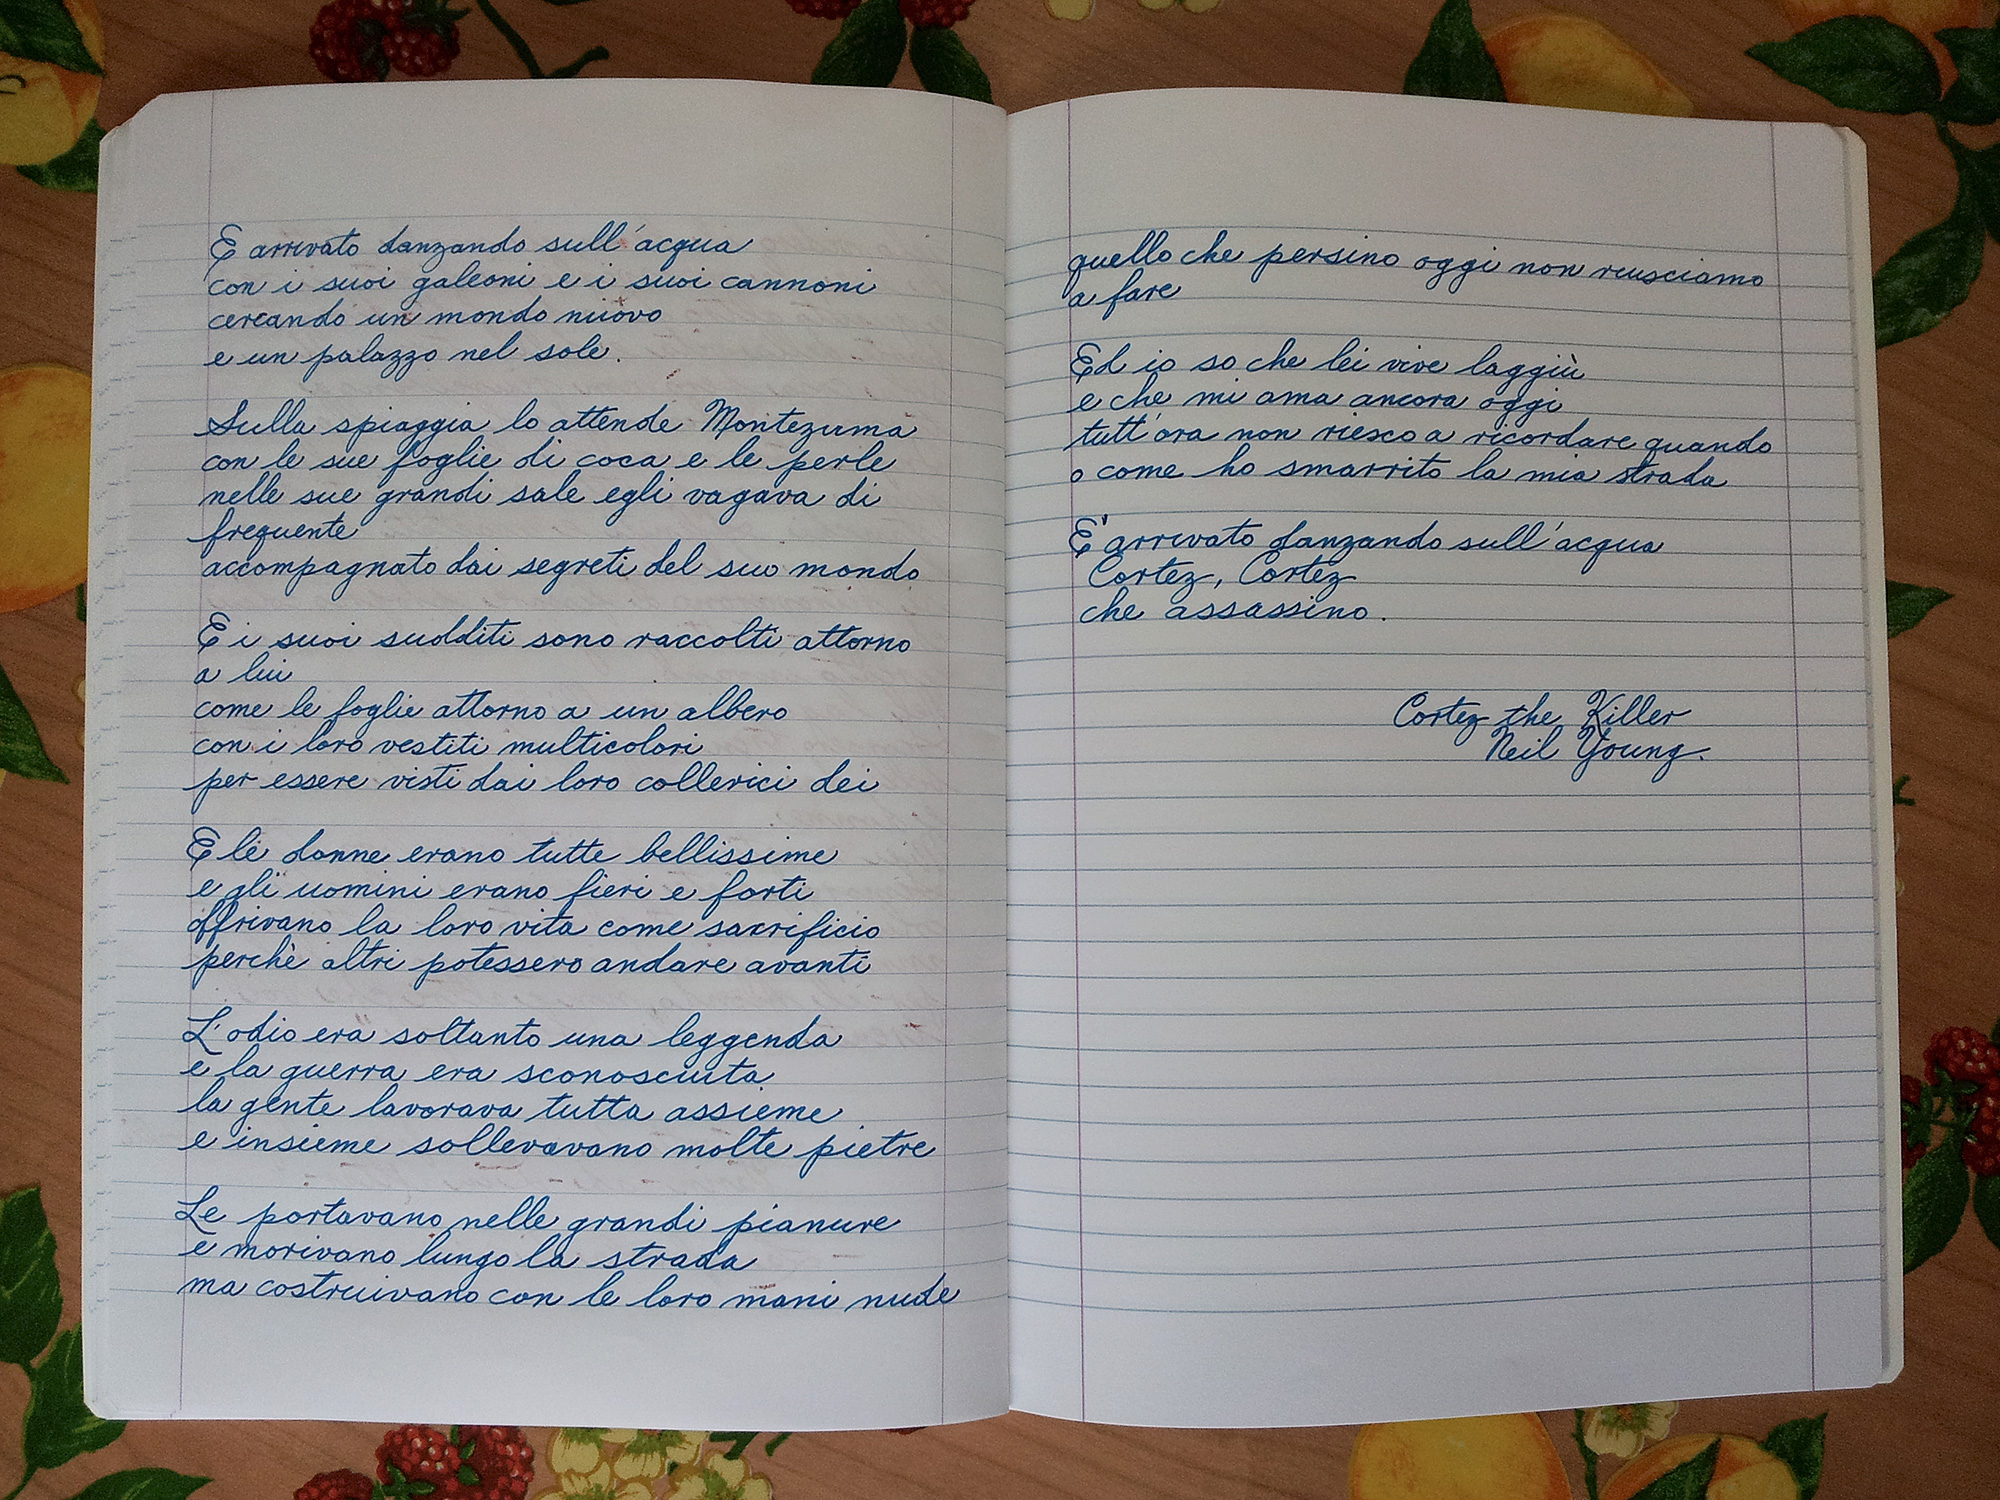 E arrivato danzando sull'acqua
con i suoi galeoni e i suoi cannoni
cercando un mondo nuovo
e un palazzo nel sole.
Sulla spiaggia lo attende Montezuma
con le sue foglie di coca e le perle
nelle sue grandi sale egli vagava di
frequente
accompagnato dai segreti del suo mondo
E i suoi sudditi sono raccolti attorno
a lui
come le foglie attorno a un albero
con i loro vestiti multicolori
per essere visti dai loro collerici dei
E le donne erano tutte bellissime
e gli uomini erano fieri e forti
offrivano la loro vita come sacrificio
perchè altri potessero andare avanti
L'odio era soltanto una leggenda
e la guerra era sconosciuta
la gente lavorava tutta assieme
e insieme sollevavano molte pietre
Le portavano nelle grandi pianure
e morivano lungo la strada
ma costruivano con le loro mani nude
quello che persino oggi non riusciamo
a fare
Ed io so che lei vive laggiù
e che mi ama ancora oggi
tutt'ora non riesco a ricordare quando
o come ho smarrito la mia strada
E' arrivato danzando sull'acqua
Cortez, Cortez
che assassino.
Cortez the Killer
Neil Young.